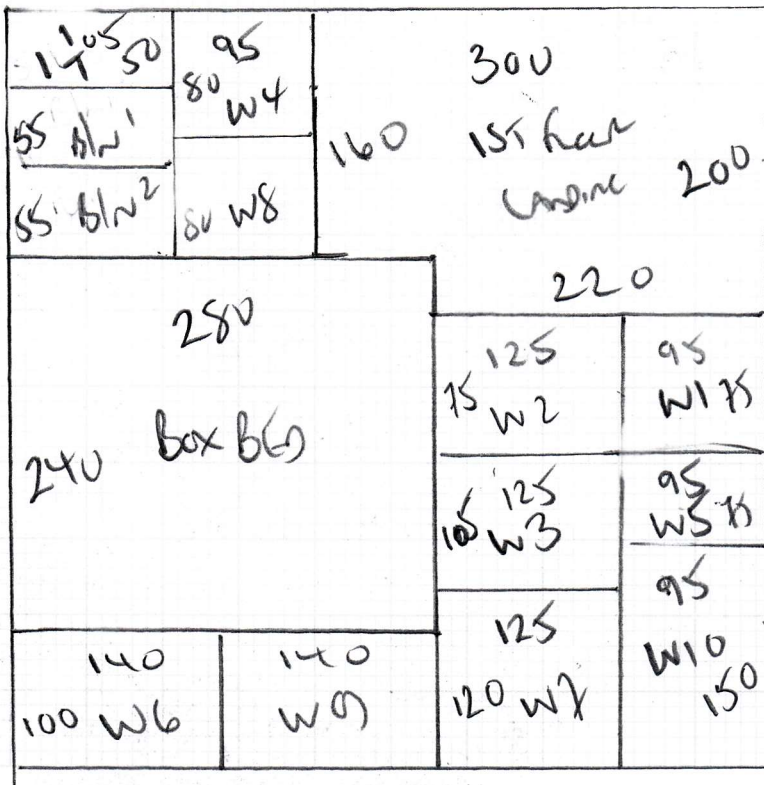 1T 105 50
55 Bln 1
55 Bln 2
95
80 W4
80 W8
160
300
1ST Floor
LANDING 200
220
280
240 BOX BED
125
75 W2
95
W1 75
125
105 W3
95
W5 75
125
120 W7
95
W10
150
140
100 W6
140
W9